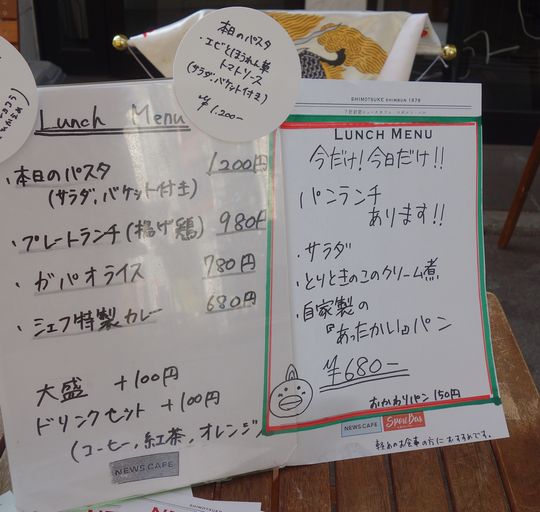 本日のパスタ
・エビとほうれん草
トマトソース
(サラダ、バケット付き)
¥1,200-
Lunch Menu
・本日のパスタ 1200円
(サラダ、バケット付き)
・プレートランチ(揚げ鶏) 980
・ガパオライス 780円
・シェフ特製カレー 680円
大盛 +100円
ドリンクセット +100円
(コーヒー、紅茶、オレンジ
NEWS CAFE
SHIMOTSUKE SHIMBUN 1878
LUNCH MENU
今だけ!今日だけ!!
パンランチ
あります!!
・サラダ
・とりときのこのクリーム煮
・自家製の
『あったかい』パン
¥680-
おかわりパン 150円
NEWS CAFE
軽めのお食事の方におすすめです。